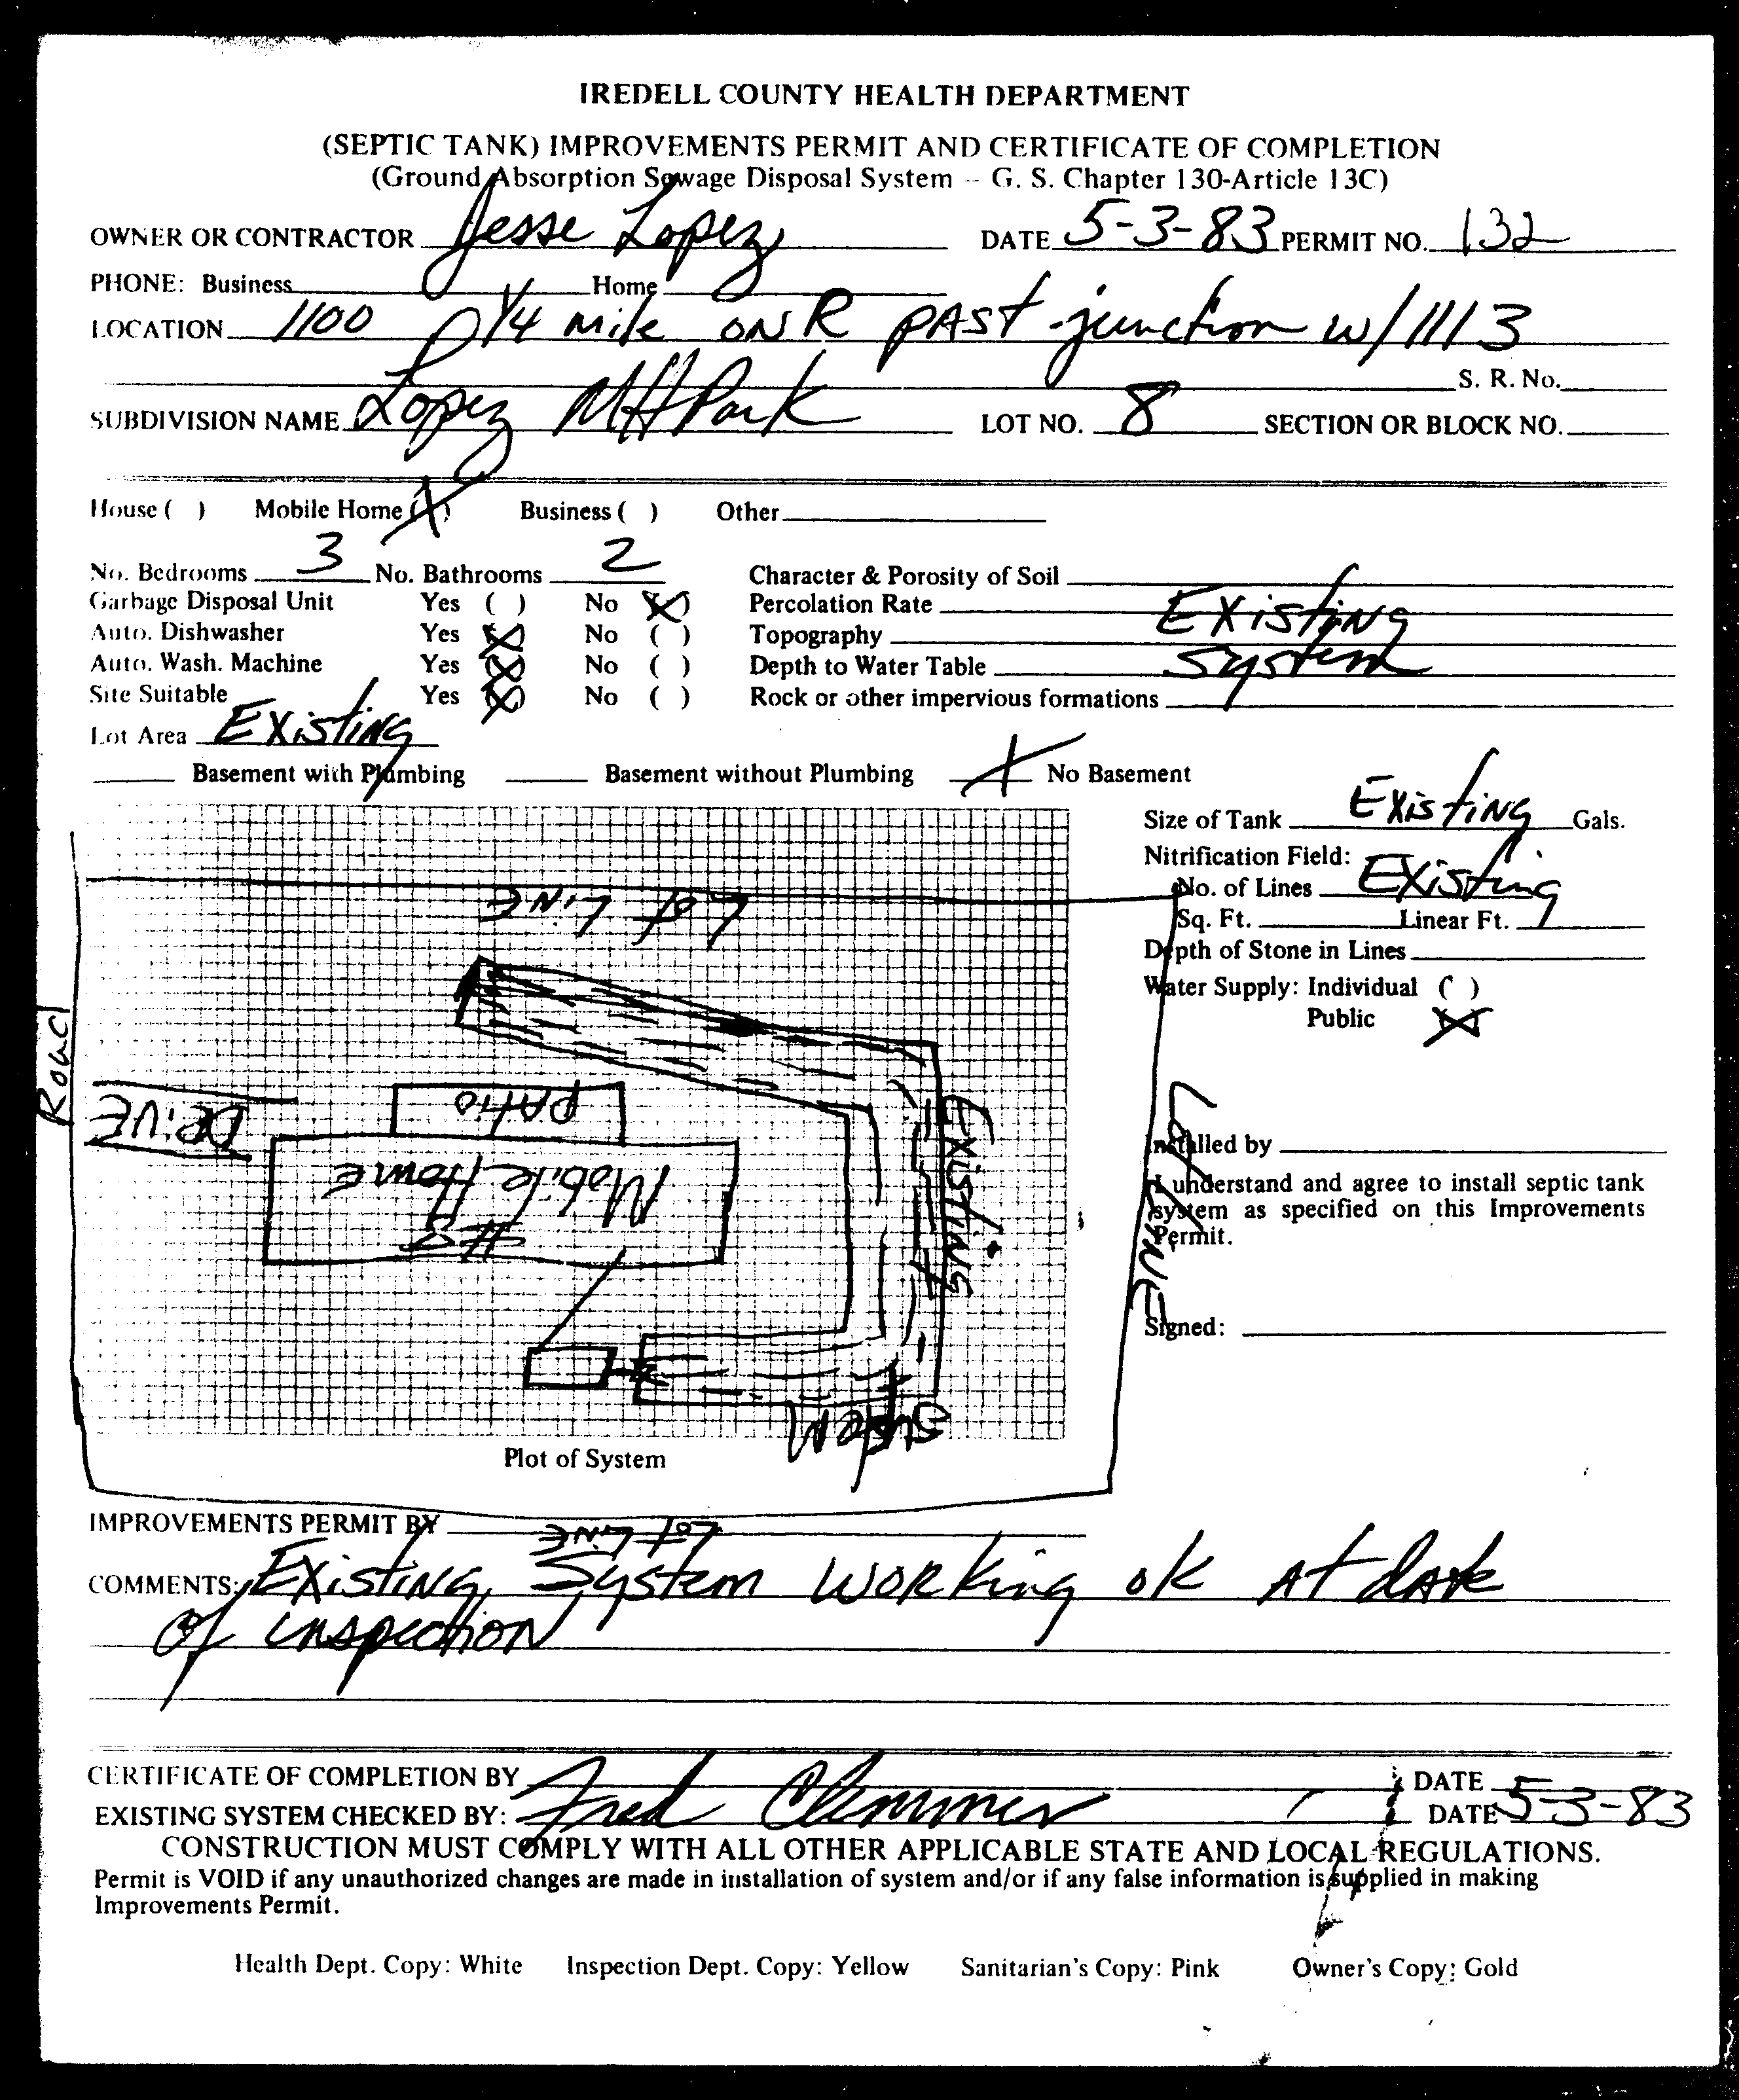 IREDELL COUNTY HEALTH DEPARTMENT
(SEPTIC TANK) IMPROVEMENTS PERMIT AND CERTIFICATE OF COMPLETION
(Ground Absorption Sewage Disposal System -- G. S. Chapter 130-Article 13C)
OWNER OR CONTRACTOR Jesse Lopez DATE 5-3-83 PERMIT NO. 132
PHONE: Business Home
LOCATION 1100 1/4 mile on R past junction w/1113
S. R. No.
SUBDIVISION NAME Lopez MH Park LOT NO. 8 SECTION OR BLOCK NO.
House ( ) Mobile Home (X) Business ( ) Other
No. Bedrooms 3 No. Bathrooms 2 Character & Porosity of Soil
Garbage Disposal Unit Yes ( ) No (X) Percolation Rate Existing
Auto. Dishwasher Yes (X) No ( ) Topography
Auto. Wash. Machine Yes (X) No ( ) Depth to Water Table System
Site Suitable Yes (X) No ( ) Rock or other impervious formations
Lot Area Existing
Basement with Plumbing Basement without Plumbing X No Basement
Size of Tank Existing Gals.
Nitrification Field:
No. of Lines Existing
Sq. Ft. Linear Ft.
Depth of Stone in Lines
Water Supply: Individual ( )
Public (X)
Installed by
I understand and agree to install septic tank
system as specified on this Improvements
Permit.
Signed:
Lot Line
Road
Drive
Patio
Mobile Home
#8
Existing
System
Lot Line
Plot of System
Lot Line
IMPROVEMENTS PERMIT BY
COMMENTS: Existing System working ok At date
of inspection
CERTIFICATE OF COMPLETION BY DATE
EXISTING SYSTEM CHECKED BY: Fred Clemmer DATE 5-3-83
CONSTRUCTION MUST COMPLY WITH ALL OTHER APPLICABLE STATE AND LOCAL REGULATIONS.
Permit is VOID if any unauthorized changes are made in installation of system and/or if any false information is supplied in making
Improvements Permit.
Health Dept. Copy: White Inspection Dept. Copy: Yellow Sanitarian's Copy: Pink Owner's Copy: Gold